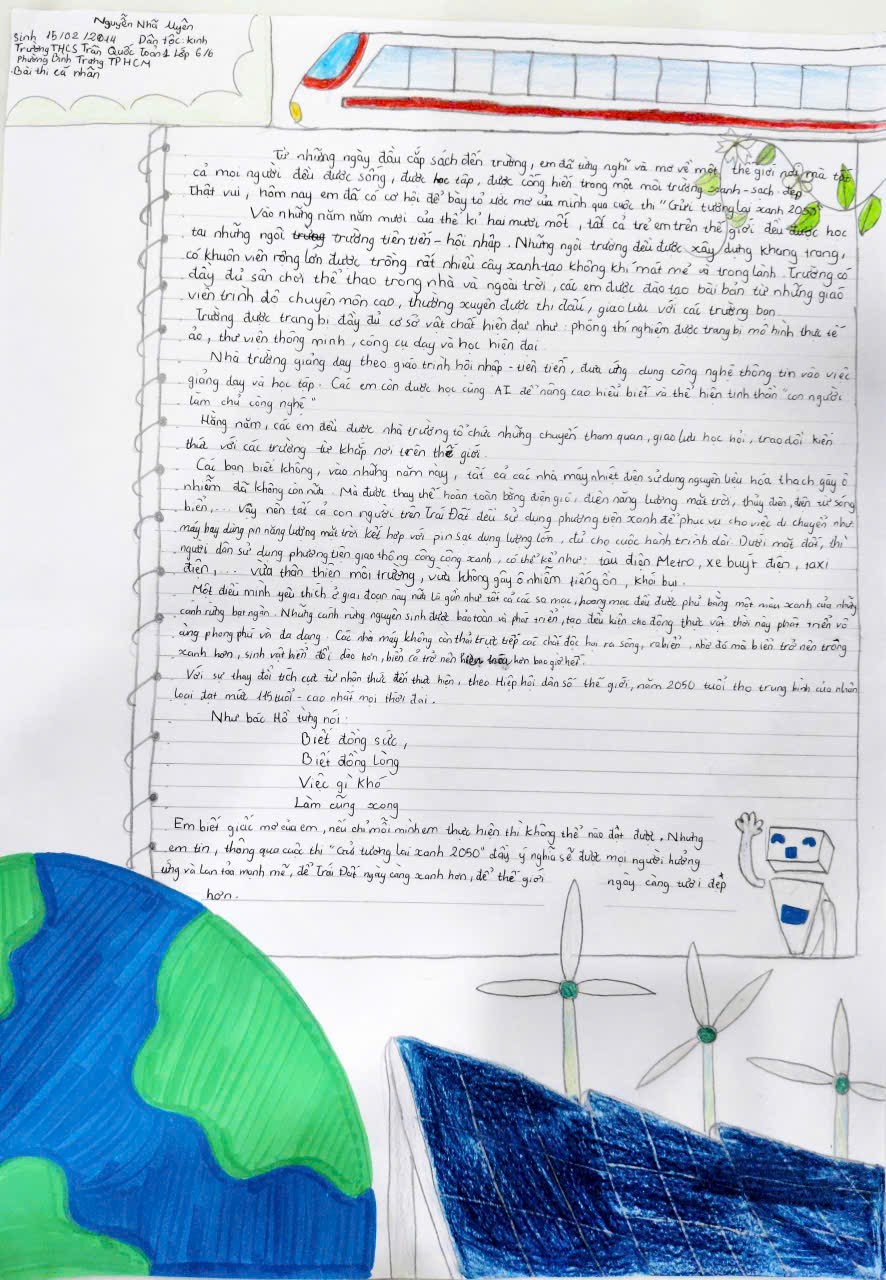 Nguyễn Nhã Uyên
Sinh 15/02/2014 Dân tộc: kinh
Trường THCS Trần Quốc Toản 1 Lớp 6/6
Phường Bình Trưng TPHCM
Bài thi cá nhân
Từ những ngày đầu cắp sách đến trường, em đã từng nghĩ và mơ về một thế giới nơi mà tất
cả mọi người đều được sống, được học tập, được cống hiến trong một môi trường xanh-sạch-đẹp
Thật vui, hôm nay em đã có cơ hội để bày tỏ ước mơ của mình qua cuộc thi "Gửi tương lại xanh 2050"
Vào những năm năm mươi của thế kỉ hai mươi mốt, tất cả trẻ em trên thế giới đều được học
tại những ngôi trường trường tiên tiến - hội nhập. Những ngôi trường đều được xây dựng khang trang,
có khuôn viên rộng lớn được trồng rất nhiều cây xanh-tạo không khí mát mẻ và trong lành. Trường có
đầy đủ sân chơi thể thao trong nhà và ngoài trời, các em được đào tạo bài bản từ những giáo
viên trình độ chuyên môn cao, thường xuyên được thi đấu, giao lưu với các trường bạn
Trường được trang bị đầy đủ cơ sở vật chất hiện đại như: phòng thí nghiệm được trang bị mô hình thực tế
ảo, thư viện thông minh, công cụ dạy và học hiện đại
Nhà trường giảng dạy theo giáo trình hội nhập - tiên tiến, đưa ứng dụng công nghệ thông tin vào việc
giảng dạy và học tập. Các em còn được học cùng AI để nâng cao hiểu biết và thể hiện tinh thần "con người
làm chủ công nghệ"
Hằng năm, các em đều được nhà trường tổ chức những chuyến tham quan, giao lưu học hỏi, trao đổi kiến
thức với các trường từ khắp nơi trên thế giới.
Các bạn biết không, vào những năm này, tất cả các nhà máy nhiệt điện sử dụng nguyên liệu hóa thạch gây ô
nhiễm đã không còn nữa. Mà được thay thế hoàn toàn bằng điện gió, điện năng lượng mặt trời, thủy điện, điện từ sóng
biển,... Vậy nên tất cả con người trên Trái Đất đều sử dụng phương tiện xanh để phục vụ cho việc di chuyển như
máy bay dùng pin năng lượng mặt trời kết hợp với pin sạc dung lượng lớn, đủ cho cuộc hành trình dài. Dưới mặt đất, thì
người dân sử dụng phương tiện giao thông công cộng xanh, có thể kể như: tàu điện Metro, xe buýt điện, taxi
điện,... vừa thân thiện môi trường, vừa không gây ô nhiễm tiếng ồn, khói bụi.
Một điều mình yêu thích ở giai đoạn này nữa là gần như tất cả các sa mạc, hoang mạc đều được phủ bằng một màu xanh của những
cánh rừng bạt ngàn. Những cánh rừng nguyên sinh được bảo toàn và phát triển, tạo điều kiện cho động thực vật thời này phát triển vô
cùng phong phú và đa dạng. Các nhà máy không còn thải trực tiếp các chất độc hại ra sông, ra biển, nhờ đó mà biển trở nên trong
xanh hơn, sinh vật biển dồi dào hơn, biển cả trở nên hiền hòa hơn bao giờ hết.
Với sự thay đổi tích cực từ nhận thức đến thực hiện, theo Hiệp hội dân số thế giới, năm 2050 tuổi thọ trung bình của nhân
loại đạt mức 115 tuổi - cao nhất mọi thời đại.
Như bác Hồ từng nói:
Biết đồng sức,
Biết đồng lòng
Việc gì khó
Làm cũng xong
Em biết giấc mơ của em, nếu chỉ mỗi mình em thực hiện thì không thể nào đạt được. Nhưng
em tin, thông qua cuộc thi "Gửi tương lai xanh 2050" đầy ý nghĩa sẽ được mọi người hưởng
ứng và lan tỏa mạnh mẽ, để Trái Đất ngày càng xanh hơn, để thế giới ngày càng tươi đẹp
hơn.